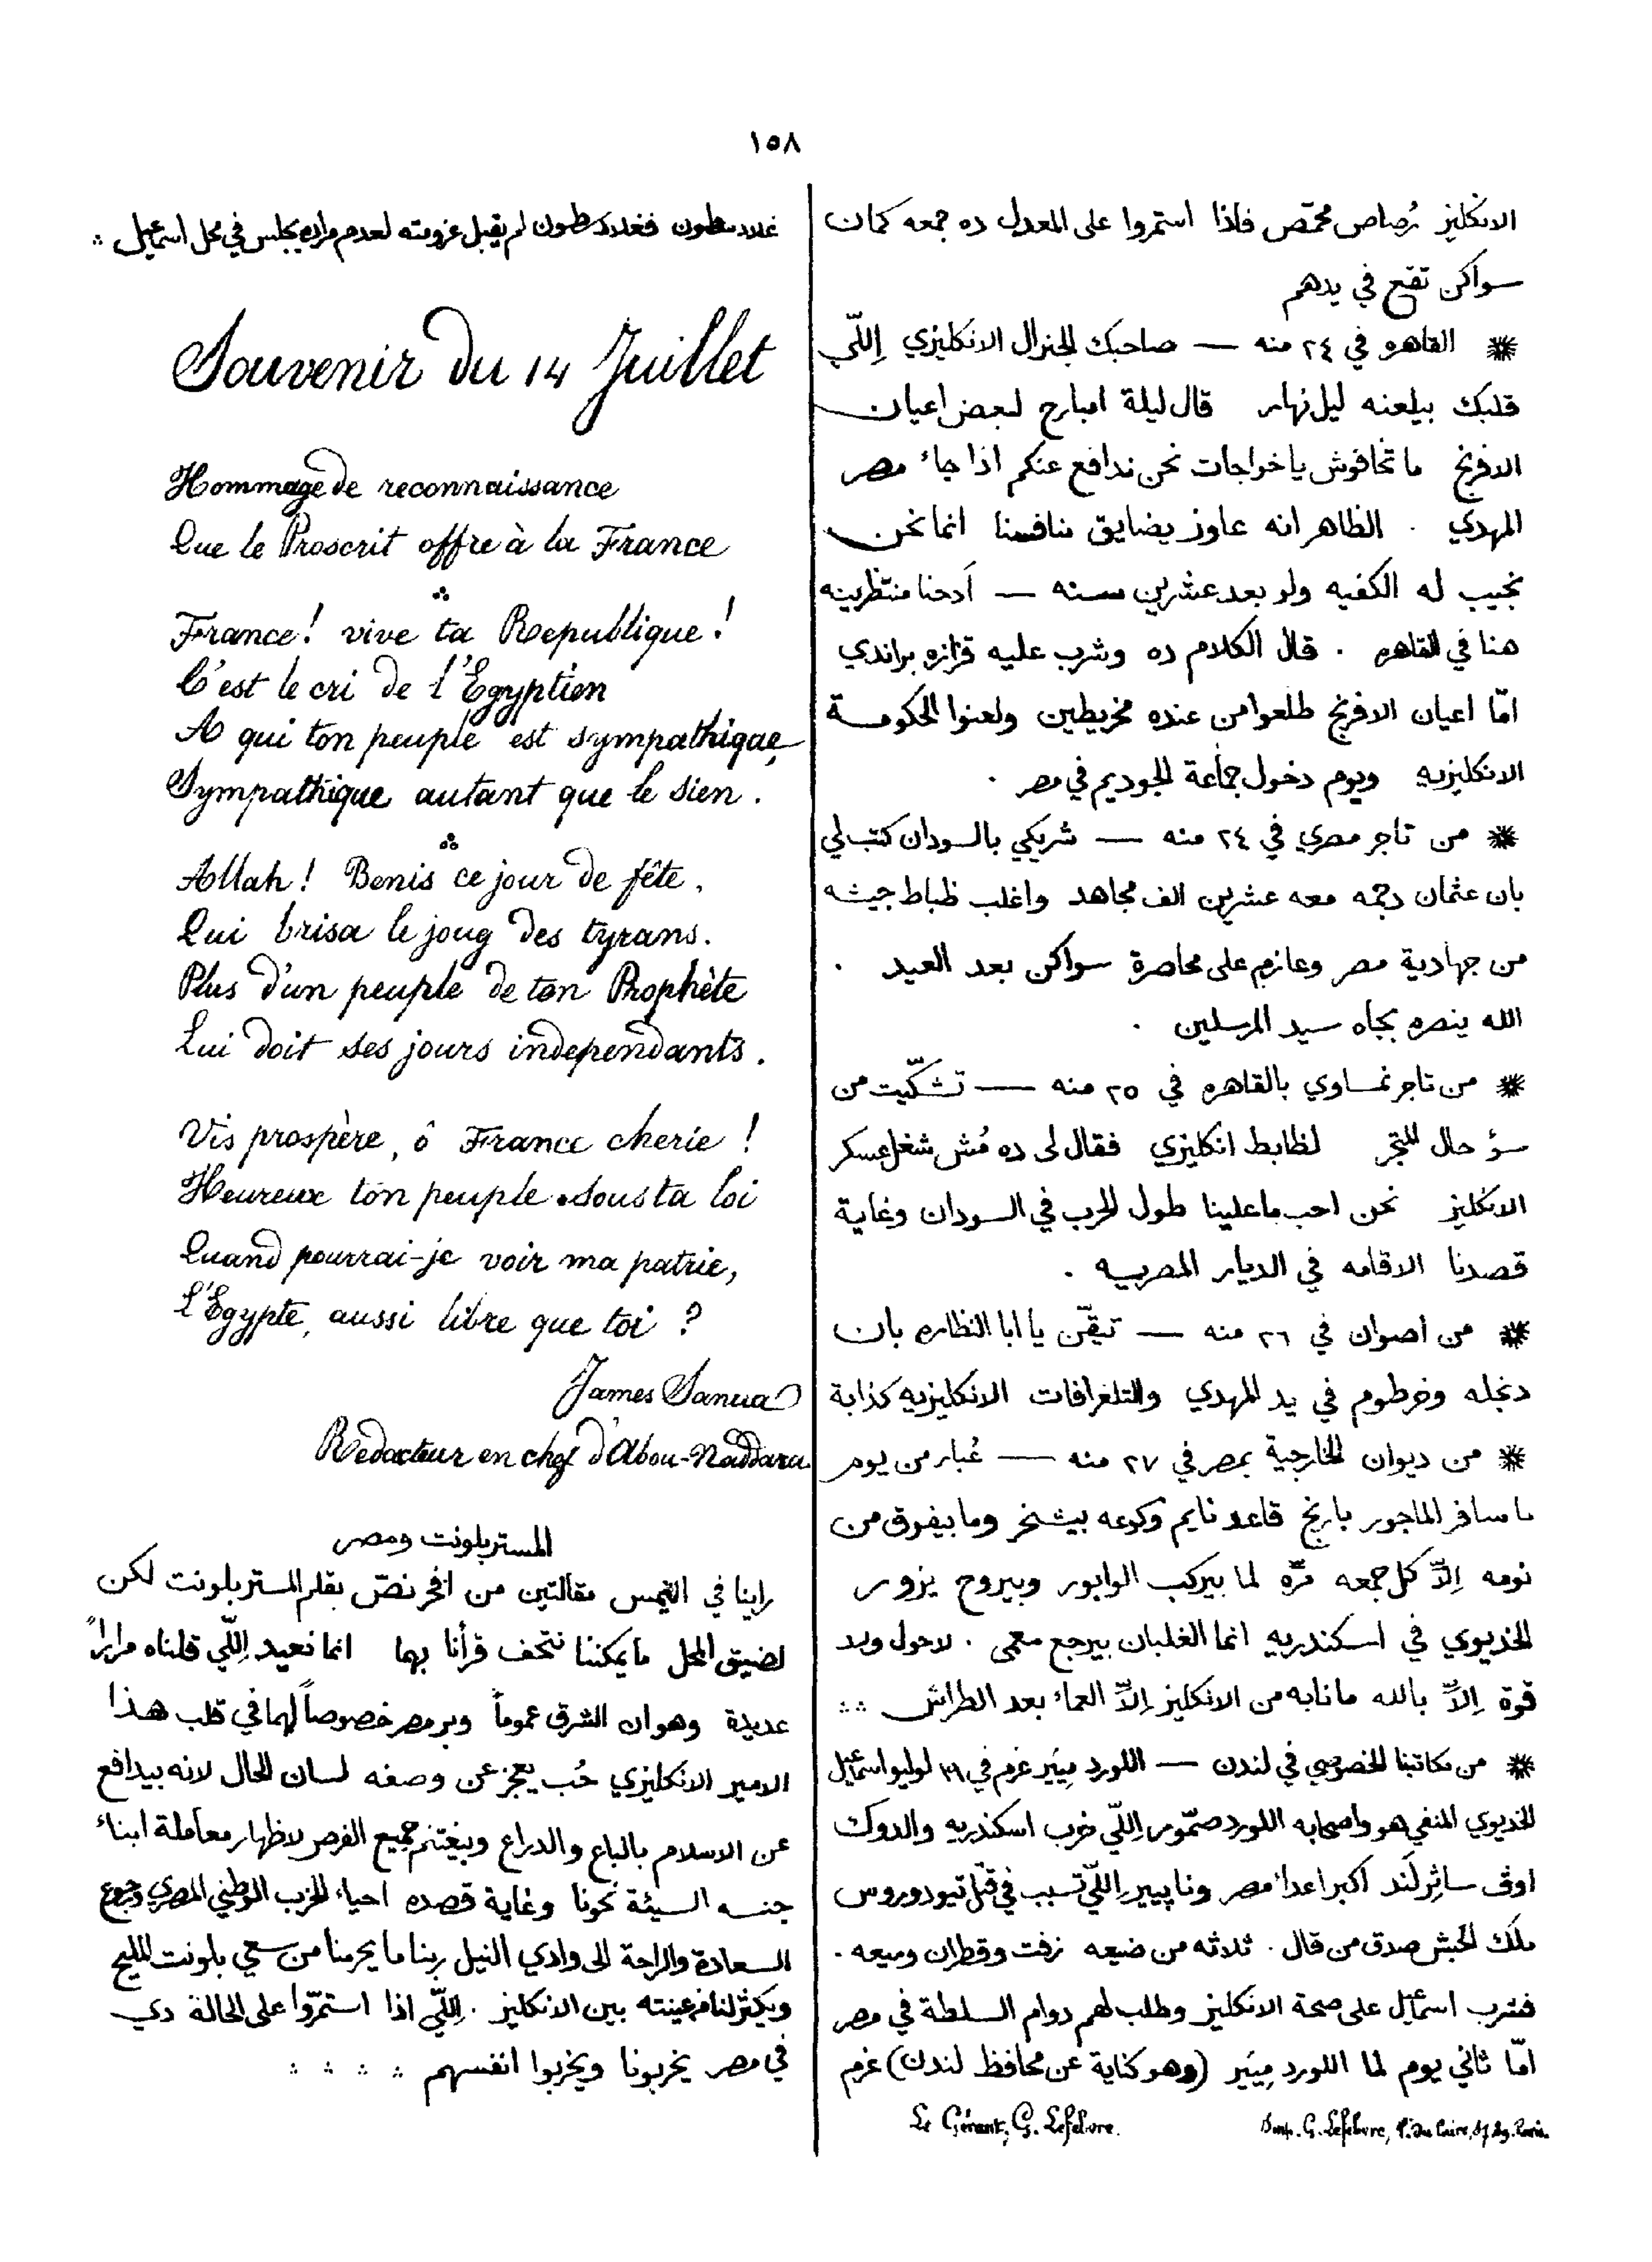 ١٥٨
الانكليز رُصاص محمّص فاذا استمروا على المعدل ده جمعه كمان
سواكن تقع في يدهم
القاهره في ٢٤ منه — صاحبك الجنرال الانكليزي اِللّي
قلبك بيلعنه ليل نهار قال ليلة امبارح لبعض اعيان
الافرنج ما تخافوش يا خواجات نحن ندافع عنكم اذا جاء مصر
المهدي . الظاهر انه عاوز يضايق منافسنا انما نحن
نجيب له الكفيه ولو بعد عشرين سنه — اَدحنا منتظرينه
هنا في القاهره . قال الكلام ده وشرب عليه قزازه براندي
امّا اعيان الافرنج طلعوا من عنده مخريطين ولعنوا الحكومة
الانكليزيه ويوم دخول جماعة الجوديم في مصر .
من تاجر مصري في ٢٤ منه — شريكي بالسودان كتب لي
بان عثمان دجمه معه عشرين الف مجاهد واغلب ظباط جيشه
من جهادية مصر وعازم على محاصرة سواكن بعد العيد .
الله ينصره بجاه سيد المرسلين .
من تاجر نمساوي بالقاهره في ٢٥ منه — تشكّيت من
سؤ حال المتجر لظابط انكليزي فقال لى ده مُش شغل عسكر
الانكليز نحن احب ما علينا طول الحرب في السودان وغاية
قصدنا الاقامه في الديار المصريه .
من اصوان في ٢٦ منه — تيقّن يا ابا النظاره بان
دنجله وخرطوم في يد المهدي والتلغرافات الانكليزيه كذابة
من ديوان الخارجية بمصر في ٢٧ منه — غُبار من يوم
ما سافر الماجور بارنج قاعد نايم وكوعه بيشخر وما بيفوق من
نومه اِلاّ كل جمعه مرّه لما بيركب الوابور وبيروح يزور
الخديوي في اسكندريه انما الغلبان بيرجع معمى . لا حول ولا
قوة اِلاّ بالله ما نابه من الانكليز اِلاّ العماء بعد الطراش
من مكاتبنا الخصوصي في لندن — اللورد مِيَير عزم في ٣١ لوليو اسماعيل
الخديوي المنفي هو واصحابه اللورد صمّور اِللّي خرب اسكندريه والدوك
اوڤ ساثِرلَند اكبر اعداء مصر وناپيير اِللّي تسبب في قتل تيودوروس
ملك الحبش صدق من قال . ثلاثه من ضيعه زفت وقطران وميعه .
فشرب اسماعيل على صحة الانكليز وطلب لهم دوام السلطة في مصر
امّا ثاني يوم لما اللورد مِيَير (وهو كناية عن محافظ لندن) عزم
Le Gérant, G. Lefebvre.
Imp. G. Lefebvre, P. du Caire, 87 89. Paris.
غلادسطون فغلادسطون لم يقبل عزومته لعدم مراده يجلس في محل اسماعيل
Souvenir du 14 Juillet
Hommage de reconnaissance
Que le Proscrit offre à la France
France! vive ta Republique!
C'est le cri de l'Egyptien
A qui ton peuple est sympathique,
Sympathique autant que le sien.
Allah! Benis ce jour de fête,
Qui brisa le joug des tyrans.
Plus d'un peuple de ton Prophète
Lui doit ses jours independants.
Vis prospère, ô France cherie!
Heureux ton peuple sous ta loi
Quand pourrai-je voir ma patrie,
L'Egypte, aussi libre que toi?
James Sanua
Redacteur en chef d'Abou-Naddara
المستر بلونت ومصر
راينا في التيمس مقالتين من افخر نصّ بقلم المستر بلونت لكن
لضيق المحل ما يمكننا نتحف قرأنا بهما انما نعيد اِللّي قلناه مراراً
عديدة وهو ان الشرق عموماً وبر مصر خصوصاً لهما في قلب هذا
الامير الانكليزي حُب يعجز عن وصفه لسان الحال لانه بيدافع
عن الاسلام بالباع والدراع وبيغتنم جميع الفرص لاظهار معاملة ابناء
جنسه السيئة نحونا وغاية قصده احياء الحزب الوطني المصري ورجوع
السعادة والراحة الى وادي النيل ربنا ما يحرمنا من سعي بلونت المليح
ويكثر لنا من عينته بين الانكليز . اِللّي اذا استمرّوا على الحالة دي
في مصر يخربونا ويخربوا انفسهم